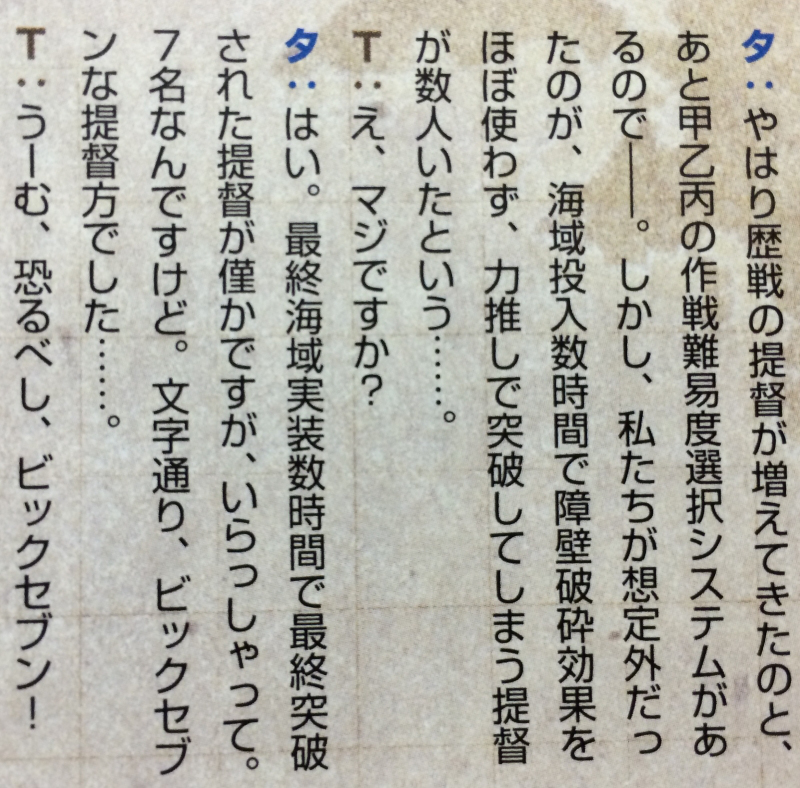 タ：やはり歴戦の提督が増えてきたのと、
あと甲乙丙の作戦難易度選択システムがあ
るので――。しかし、私たちが想定外だっ
たのが、海域投入数時間で障壁破砕効果を
ほぼ使わず、力推しで突破してしまう提督
が数人いたという……。
T：え、マジですか？
タ：はい。最終海域実装数時間で最終突破
された提督が僅かですが、いらっしゃって。
7名なんですけど。文字通り、ビックセブ
ンな提督方でした……。
T：うーむ、恐るべし、ビックセブン！